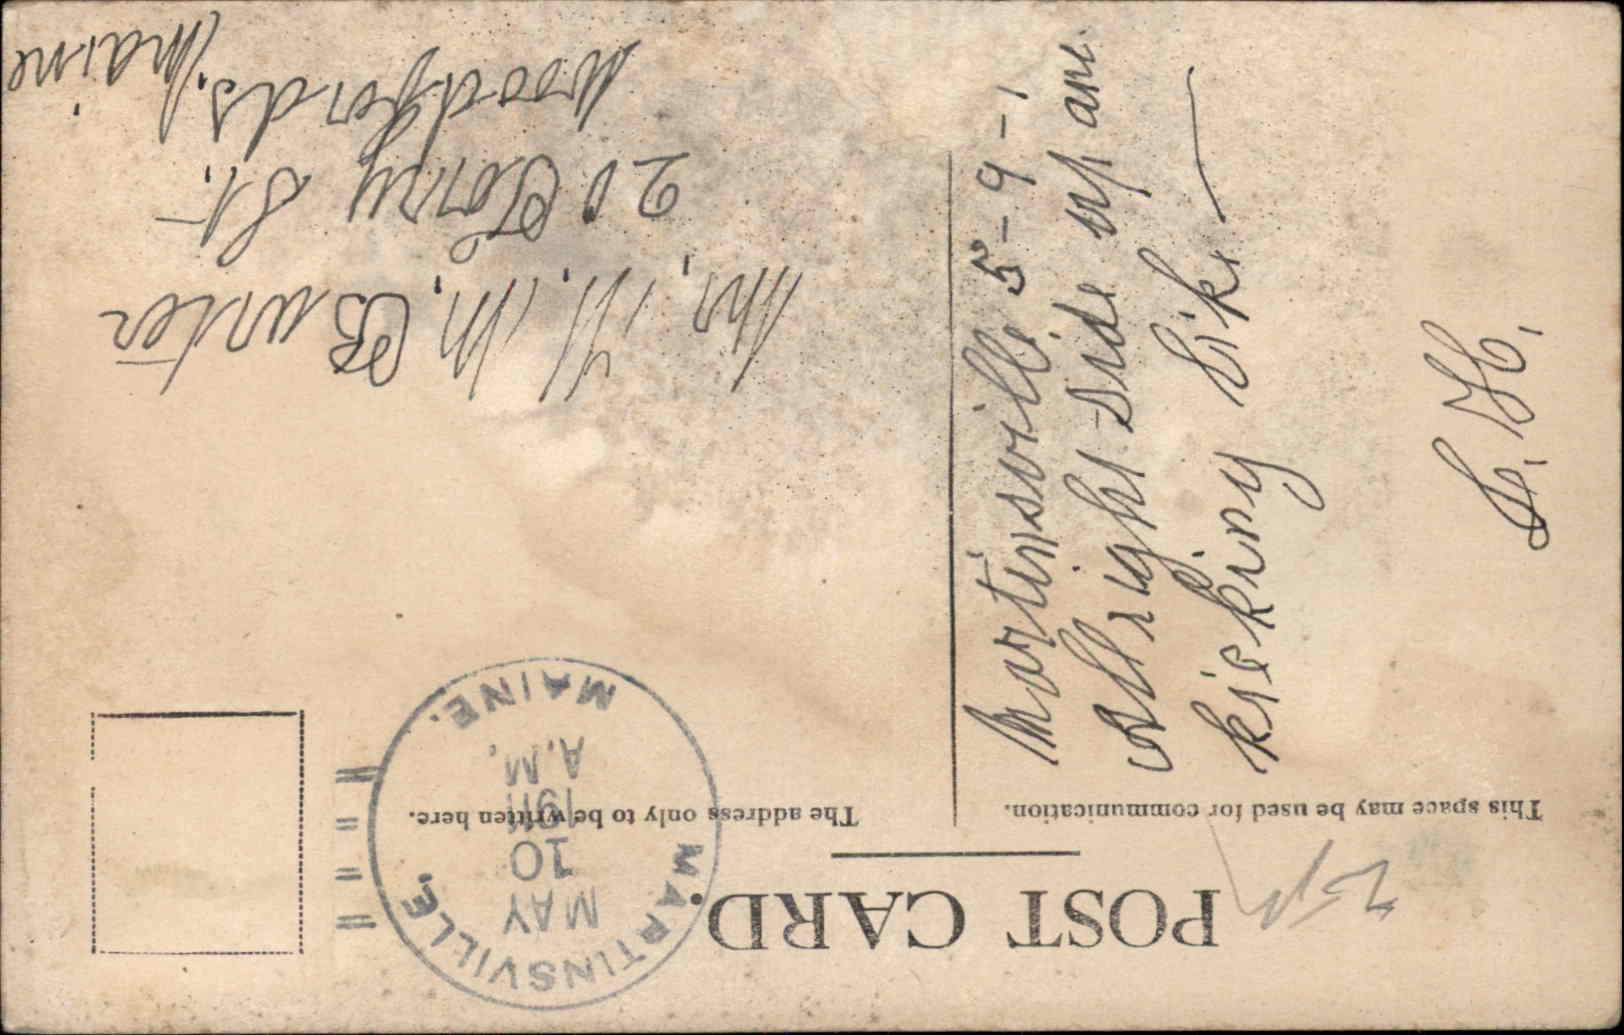 POST CARD
This space may be used for communication.
The address only to be written here.
MARTINSVILLE.
MAY
10
1911
A.M.
MAINE.
Martinsville 5-9-1
All right side up and
kicking Like
L. H.
Mr. H. M. Bunter
20 St.
Woodfords, Maine